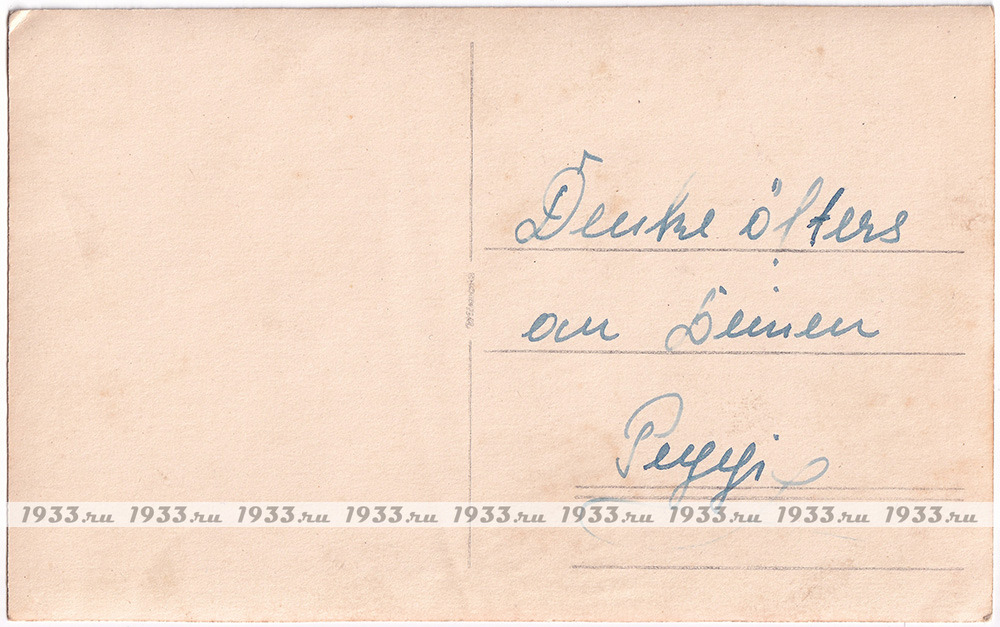 Denke öfters
an Deinen
Peggi
1933.ru 1933.ru 1933.ru 1933.ru 1933.ru 1933.ru 1933.ru 1933.ru 1933.ru